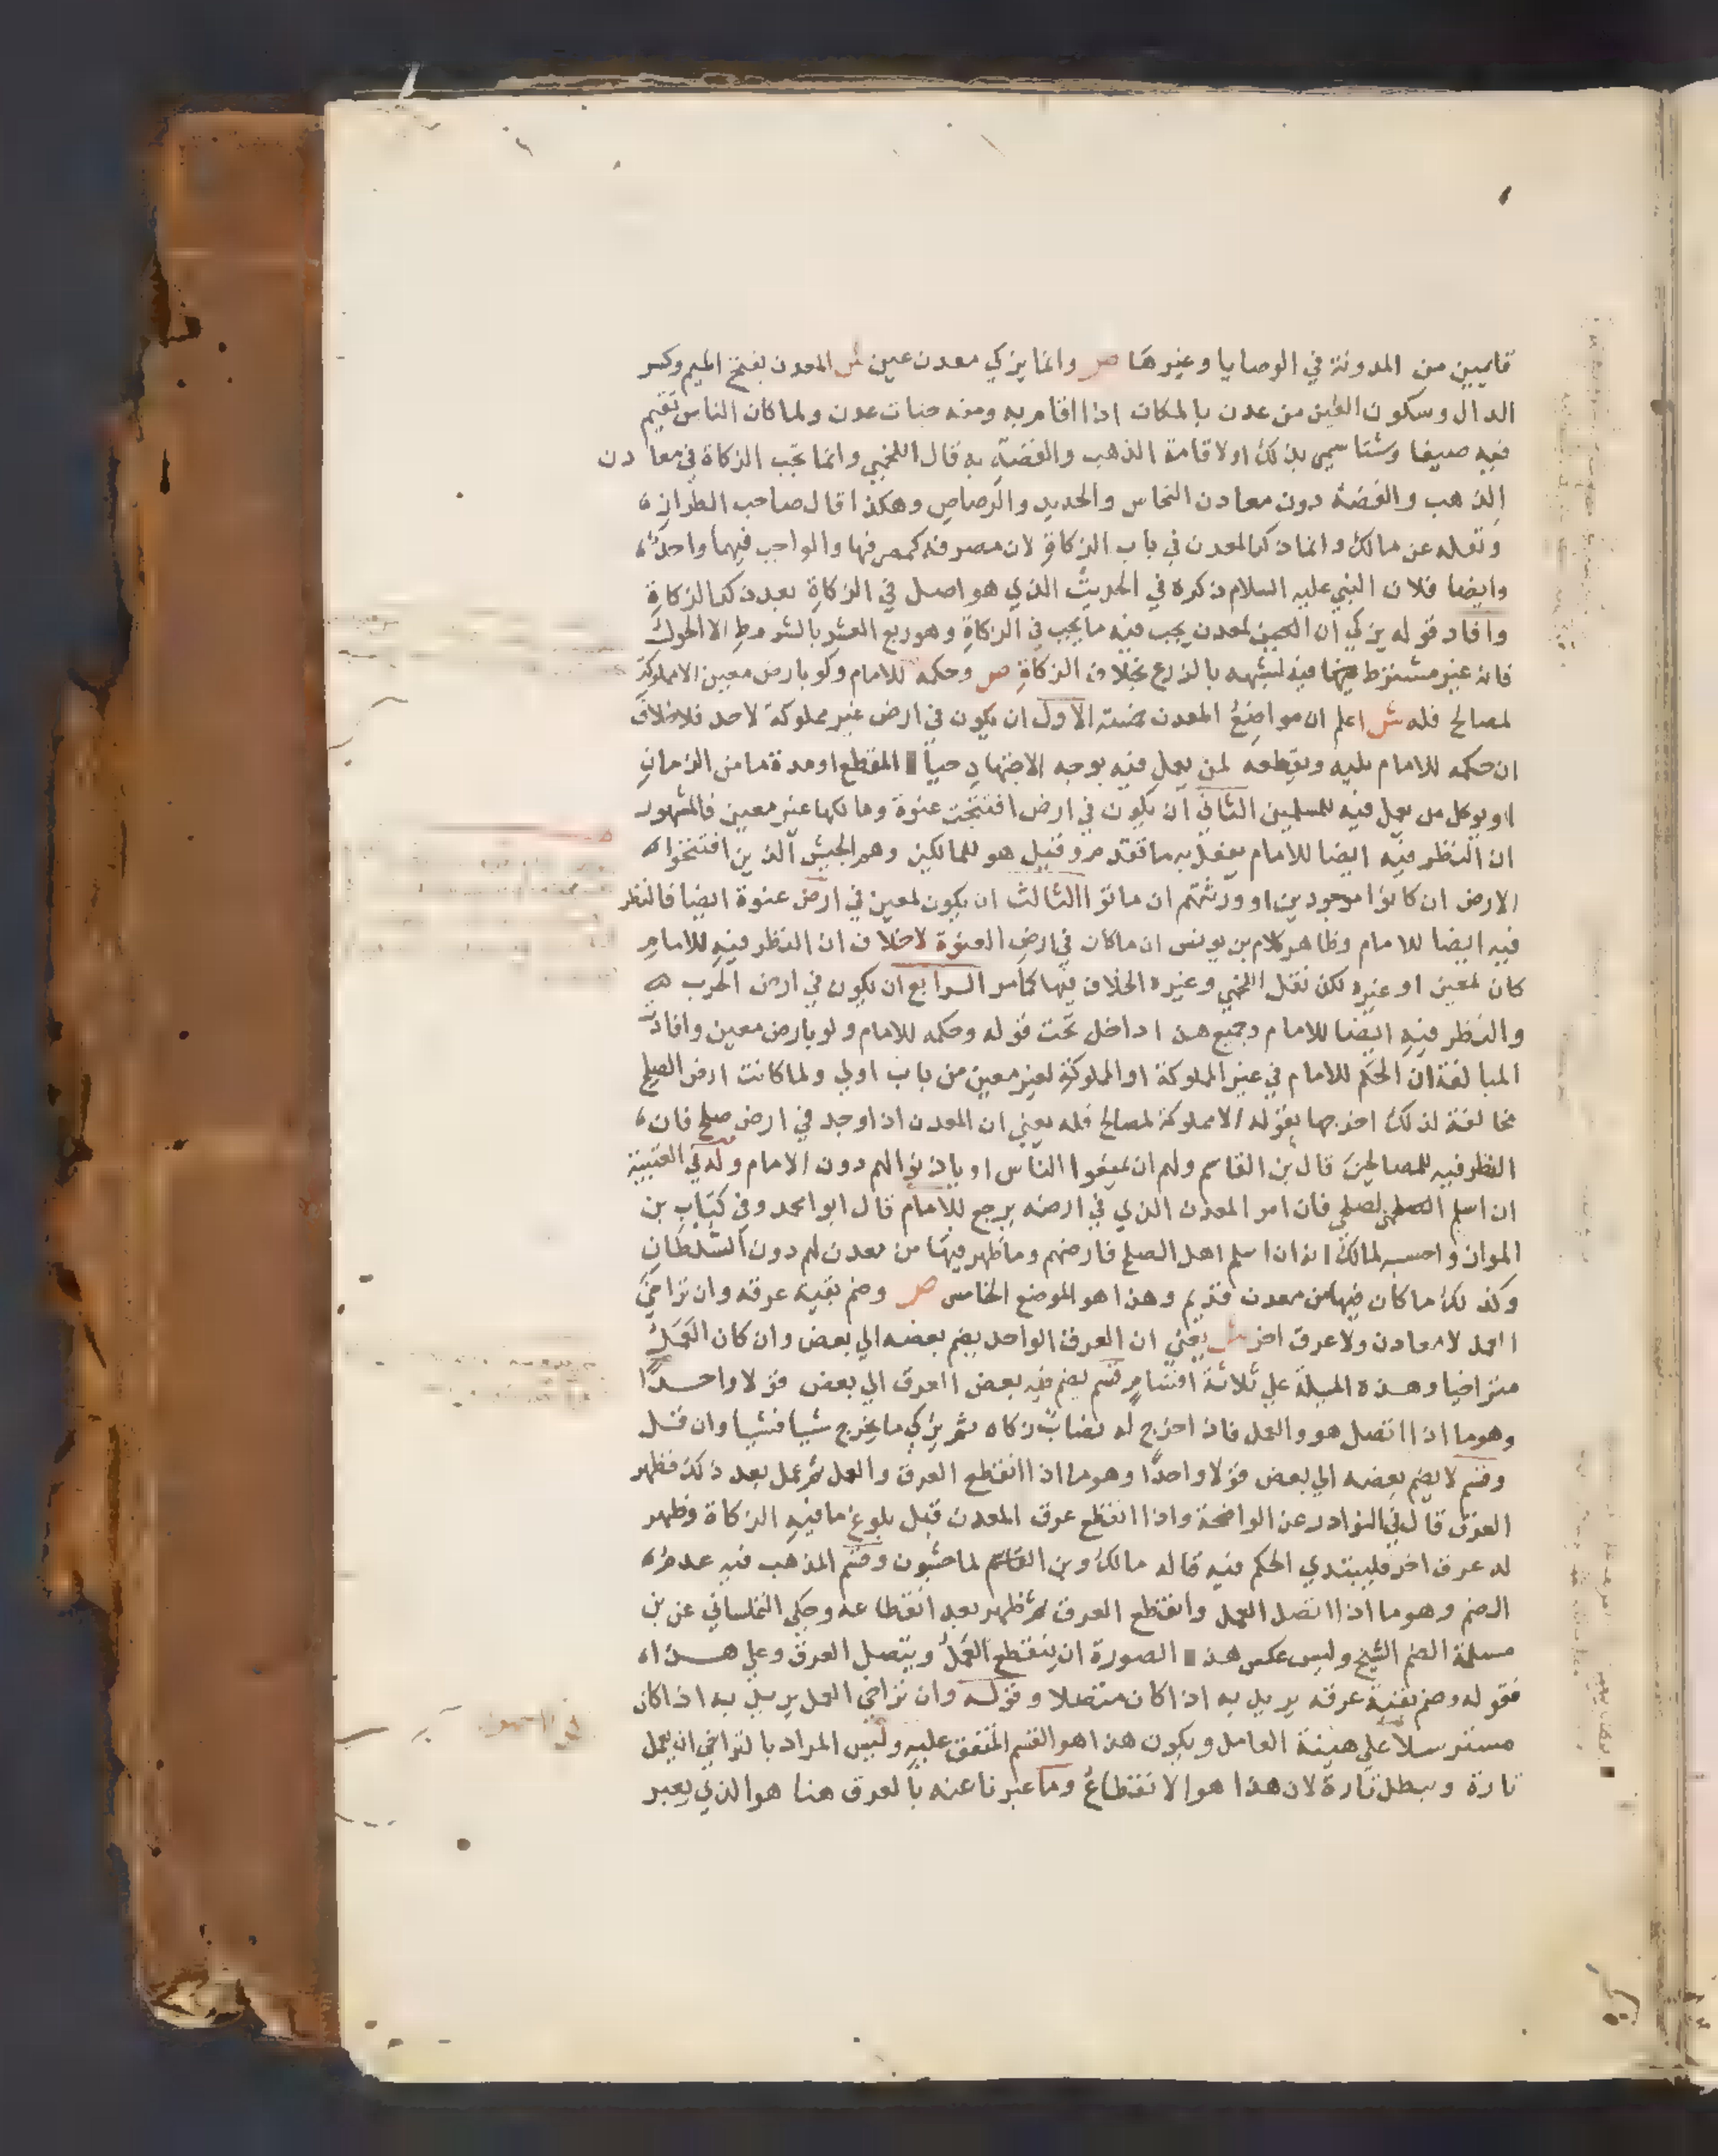 قايمين من المدونة في الوصايا وغيرها ص وانما يزكي معدن عين ش المعدن بفتح الميم وكسر
الدال وسكون العين من عدن بالمكان اذا اقام به ومنه جنات عدن ولما كان الناس تقيم
فيه صيفا وشتا سمي بذلك او لاقامة الذهب والفضة به قال اللخمي وانما تجب الزكاة في معادن
الذهب والفضة دون معادن النحاس والحديد والرصاص وهكذا قال صاحب الطراز
ونقله عن مالك وانما ذكر المعدن في باب الزكاة لان مصرفه كمصرفها والواجب فيهما واحد
وايضا فلان النبي عليه السلام ذكره في الحديث الذي هو اصل في الزكاة بعد ذكر الزكاة
وافاد قوله يزكي ان العين لمعدن يجب فيه ما يجب في الزكاة وهو ربع العشر بالشروط الا الحول
فانه غير مشترط فيه لشبهه بالزرع بخلاف الزكاة ص وحكمه للامام ولو بارض معين الا مملوكة
لمصالح فله ش اعلم ان مواضع المعدن خمسة الاول ان يكون في ارض غير مملوكة لاحد فلا خلاف
ان حكمه للامام يليه ويقطعه لمن يعمل فيه بوجه الاجتهاد حياة المقطع او مدة ما من الزمان
او يوكل من يعمل فيه للمسلمين الثاني ان يكون في ارض افتتحت عنوة ومالكها غير معين فالمشهور
ان النظر فيه ايضا للامام يفعل به ما تقدم وقيل هو للمالكين وهم الجيش الذين افتتحوا
الارض ان كانوا موجودين او ورثتهم ان ماتوا الثالث ان يكون لمعين في ارض عنوة ايضا فالنظر
فيه ايضا للامام وظاهر كلام بن يونس ان ما كان في ارض العنوة لا خلاف ان النظر فيه للامام
كان لمعين او غيره لكن نقل اللخمي وغيره الخلاف فيها كما مر الرابع ان يكون في ارض الحرب
والنظر فيه ايضا للامام وجميع هذا داخل تحت قوله وحكمه للامام ولو بارض معين وافادت
المبالغة ان الحكم للامام في غير المملوكة او المملوكة لغير معين من باب اولي ولما كانت ارض الصلح
مخالفة لذلك اخرجها بقوله الا مملوكة لمصالح فله يعني ان المعدن اذا وجد في ارض صلح فان
النظر فيه للمصالحين قال بن القاسم ولهم ان يمنعوا الناس او ياذنوا لهم دون الامام وله في العتبية
ان اسلم الصلحي فان امر المعدن الذي في ارضه يرجع للامام قال ابو محمد وفي كتاب بن
المواز واحسبه لمالك انه ان اسلم اهل الصلح فارضهم وما ظهر فيها من معدن لهم دون السلطان
وكذلك ما كان فيها من معدن قديم وهذا هو الموضع الخامس ص وضم بقية عرقه وان تراخي
العمل لا معادن ولا عرق اخر ش يعني ان العرق الواحد يضم بعضه الي بعض وان كان العمل
متراخيا وهذه المسيلة علي ثلاثة اقسام قسم يضم فيه بعض العرق الي بعض قولا واحدا
وهو ما اذا اتصل هو والعمل فاذا اخرج له نصاب زكاه ثم يزكي ما يخرج شيا فشيا وان قل
وقسم لا يضم بعضه الي بعض قولا واحدا وهو ما اذا انقطع العرق والعمل ثم عمل بعد ذلك فظهر
العرق قال في النوادر عن الواضحة واذا انقطع عرق المعدن قبل بلوغ ما فيه الزكاة وظهر
له عرق اخر فليبتدي الحكم فيه قاله مالك وبن الماجشون وقسم المذهب فيه عدم
الضم وهو ما اذا اتصل العمل وانقطع العرق ثم ظهر بعد انقطاعه وحكي التلمساني عن بن
مسلمة الضم الشيخ وليس عكس هذه الصورة ان ينقطع العمل ويتصل العرق وعلي هذا
فقوله وضم بقية عرقه يريد به اذا كان متصلا وقوله وان تراخي العمل يريد به اذا كان
مسترسلا علي هينة العامل ويكون هذا هو القسم المتفق عليه وليس المراد بالتراخي ان يعمل
تارة ويبطل تارة لان هذا هو الانقطاع وما عبرنا عنه بالعرق هنا هو الذي يعبر